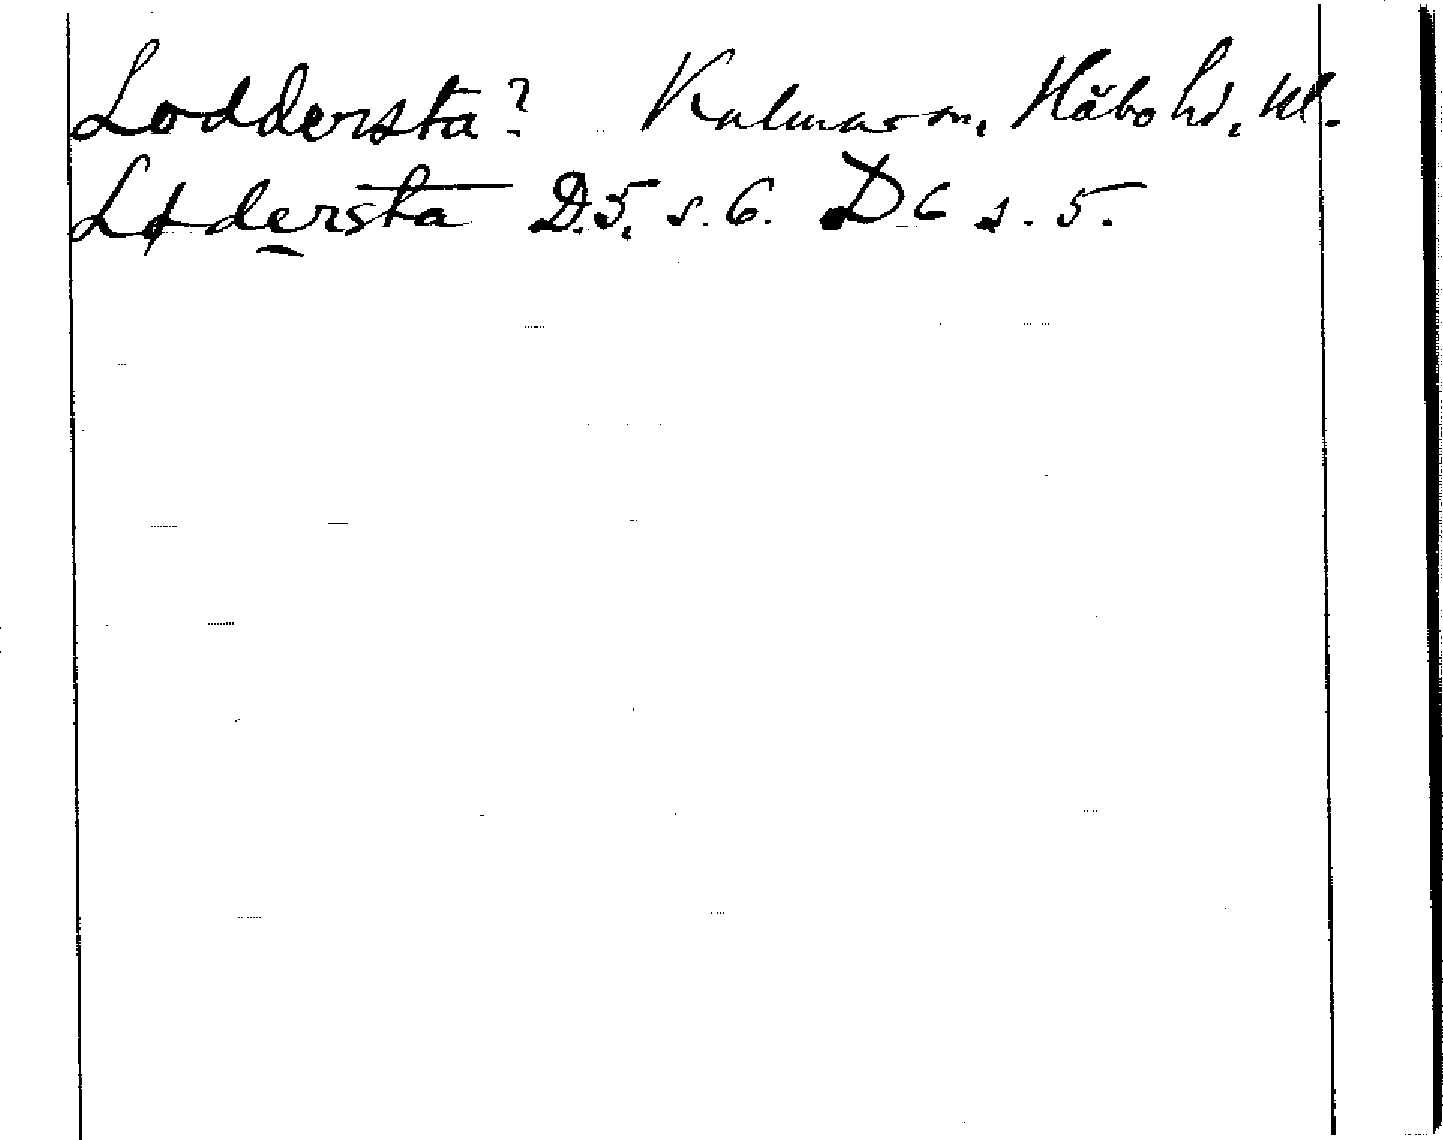 Loddersta? Kalmar sn, Håbo hd, Ul.
Lødersta D.5, s. 6. D6 s. 5.